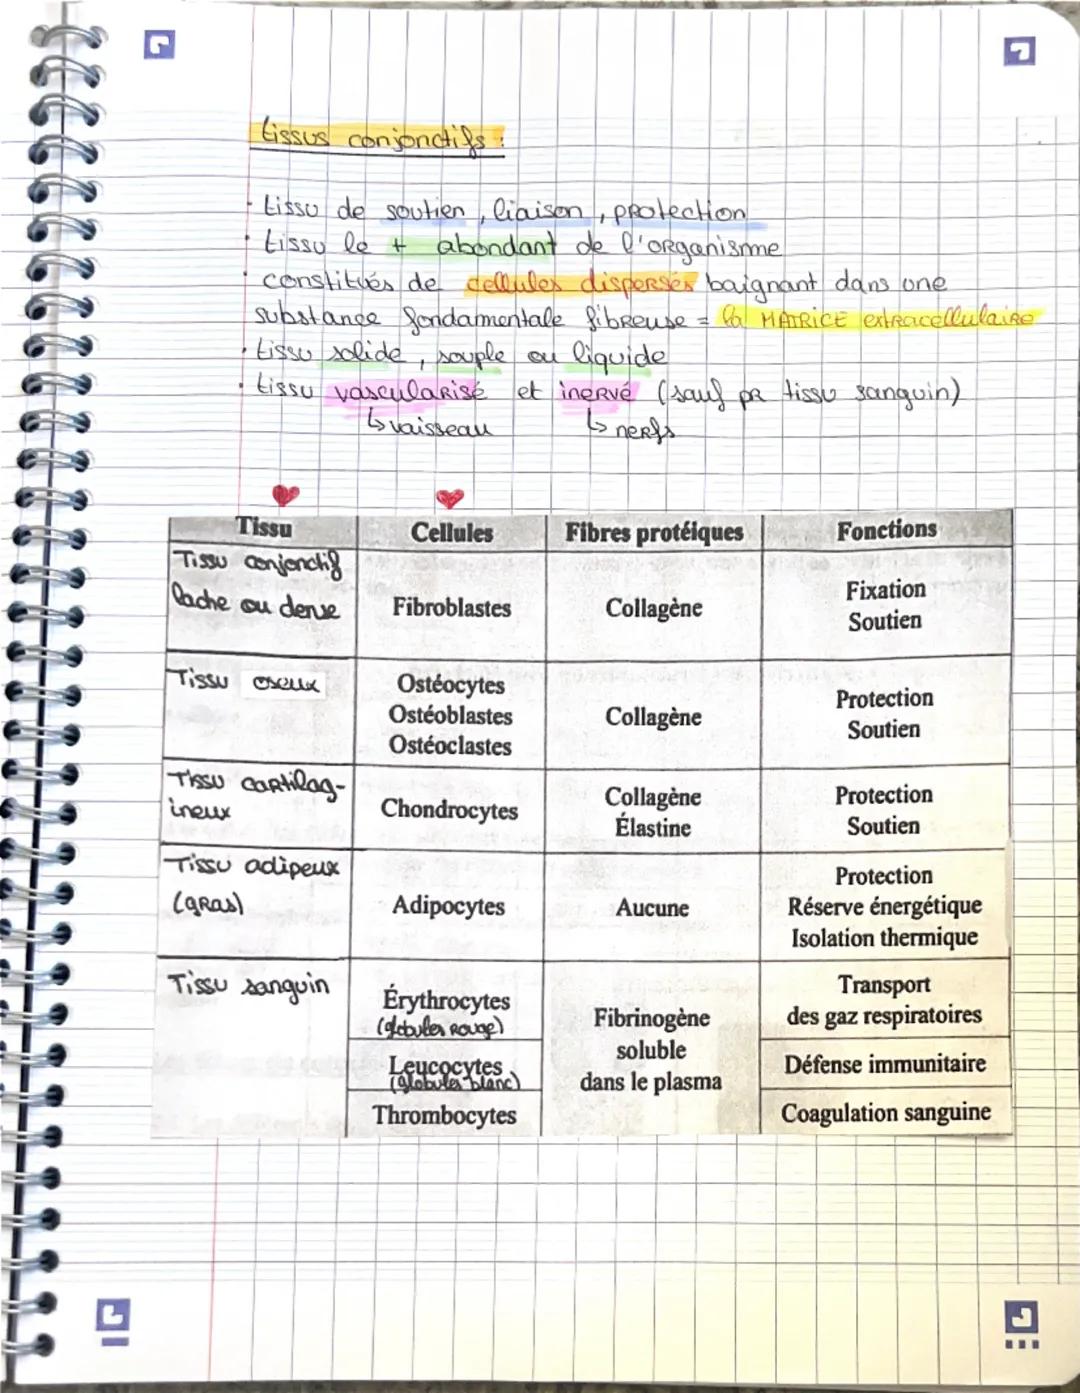 tissus conjonctifs :
· tissu de soutien, liaison, protection
· tissu le + abondant de l'organisme
· constitués de cellules dispersés baignant dans une
substance fondamentale fibreuse = la MATRICE extracellulaire
· tissu solide, souple ou liquide
· tissu vascularisé et inervé (sauf pr tissu sanguin)
↳ vaisseau ↳ nerfs
Tissu Cellules Fibres protéiques Fonctions
Tissu conjonctif
lache ou dense Fibroblastes Collagène Fixation
Soutien
Tissu oseux Ostéocytes
Ostéoblastes
Ostéoclastes
Collagène
Protection
Soutien
Tissu cartilag-
ineux
Chondrocytes
Collagène
Élastine
Protection
Soutien
Tissu adipeux
(gras)
Adipocytes
Aucune
Protection
Réserve énergétique
Isolation thermique
Tissu sanguin
Érythrocytes
(globules rouge)
Leucocytes
(globules blanc)
Thrombocytes
Fibrinogène
soluble
dans le plasma
Transport
des gaz respiratoires
Défense immunitaire
Coagulation sanguine